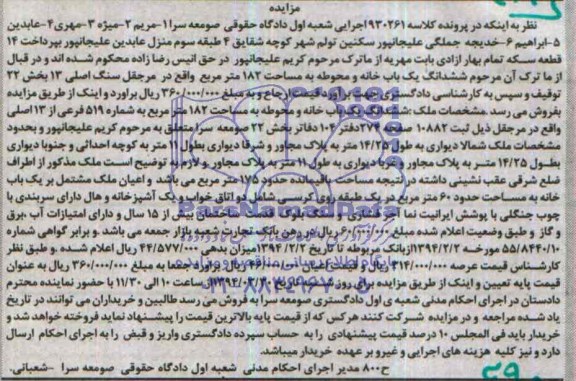 مزایده
نظر به اینکه در پرونده کلاسه ۹۳۰۲۶۱ اجرایی شعبه اول دادگاه حقوقی صومعه سرا ۱-مریم ۲-میژه ۳-مهری ۴-عابدین
۵-ابراهیم ۶-خدیجه جملگی علیجانپور سکنین تولم شهر کوچه شقایق ۴ طبقه سوم منزل عابدین علیجانپور بپرداخت ۱۴
قطعه سکه تمام بهار ازادی بابت مهریه از ماترک مرحوم کریم علیجانپور در حق انیس رضا زاده محکوم شده اند و در قبال
از ما ترک آن مرحوم ششدانگ یک باب خانه و محوطه به مساحت ۱۸۲ متر مربع واقع در مرجقل سنگ اصلی ۱۳ بخش ۲۲
توقیف و سپس به کارشناسی دادگستری جهت براورد قیمت ارجاع و به مبلغ ۳۶۰/۰۰۰/۰۰۰ ریال براورد و اینک از طریق مزایده
بفروش می رسد. مشخصات ملک :ششدانگ یک باب خانه و محوطه به مساحت ۱۸۲ متر مربع به شماره ۵۱۹ فرعی از ۱۳ اصلی
واقع در مرجقل ذیل ثبت ۱۰۸۸۲ صفحه ۲۷۴ دفتر ۱۰۲ دفاتر بخش ۲۲ صومعه سرا متعلق به مرحوم کریم علیجانپور و بحدود
مشخصات ملک شمالا دیواری به طول ۱۴/۲۵ متر به پلاک مجاور و شرقا دیواری بطول ۱۱ متر به کوچه احداثی و جنوبا دیواری
بطول ۱۴/۲۵ متر به پلاک مجاور و غربا دیواری به طول ۱۱ متر به پلاک مجاور و لازم به توضیح است ملک مذکور از اطراف
ضلع شرقی عقب نشینی داشته در نتیجه مساحت باقیمانده حدود ۱۷۵ متر مربع می باشد و اعیان ملک مشتمل بر یک باب
خانه به مساحت حدود ۶۰ متر مربع در یک طبقه روی کرسی شامل دو اتاق خواب و یک آشپزخانه و هال دارای سربندی با
چوب جنگلی با پوشش ایرانیت نما بلوک سیمانی قدمت ساختمان بیش از ۱۵ سال و دارای امتیازات آب ،برق
و گاز و طبق وضعیت اعلام شده مبلغ ریال در رهن بانک تجارت شعبه بازار جمعه می باشد .و برابر گواهی شماره
۵۵/۸۴۴۰/۱۰ مورخه ۱۳۹۴/۲/۲ بانک مربوطه تا تاریخ ۱۳۹۴/۲/۲ میزان بدهی ۴۴/۵۷۷/۰۰۰ ریال اعلام شده .و طبق نظر
کارشناس قیمت عرصه ۳۱۴/۰۰۰/۰۰۰ ریال و قیمت اعیان ۴۶/۰۰۰/۰۰۰ ریال براورد جمعا به مبلغ ۳۶۰/۰۰۰/۰۰۰ ریال به عنوان
قیمت پایه تعیین و اینک از طریق مزایده برای روز ساعت ۱۰ الی ۱۱/۳۰ با حضور نماینده محترم
دادستان در اجرای احکام مدنی شعبه ی اول دادگستری صومعه سرا به فروش می رسد طالبین و خریداران می توانند در تاریخ
یاد شده مراجعه و در مزایده شرکت کنند هرکس که از قیمت پایه بالاترین قیمت را پیشنهاد نماید فروخته خواهد شد و
خریدار باید فی المجلس ۱۰ درصد قیمت پیشنهادی را به حساب سپرده دادگستری واریز و قبض را به اجرای احکام ارسال
دارد و نیز کلیه هزینه های اجرایی و غیرو بر عهده خریدار میباشد.
ح۸۰۰ مدیر اجرای احکام مدنی شعبه اول دادگاه حقوقی صومعه سرا -شعبانی.
۳۹۰